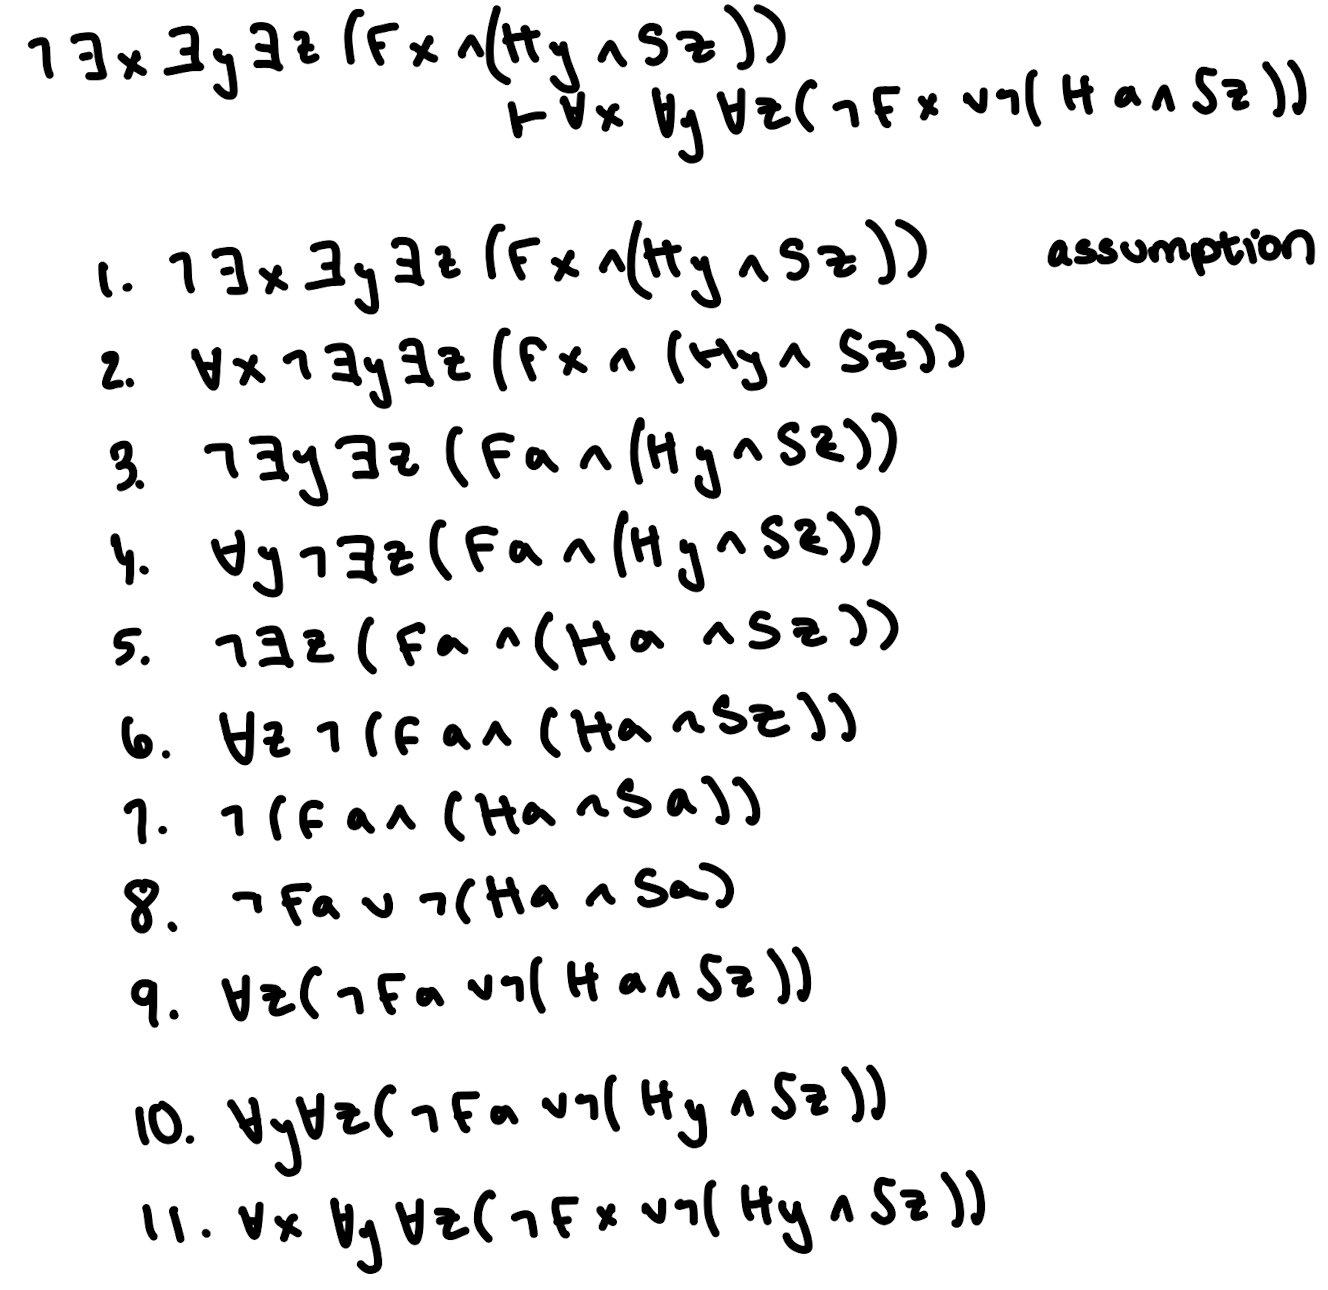 ¬∃x∃y∃z(Fx∧(Hy∧Sz))
⊢∀x∀y∀z(¬Fx∨¬(Ha∧Sz))
1. ¬∃x∃y∃z(Fx∧(Hy∧Sz)) assumption
2. ∀x¬∃y∃z(Fx∧(Hy∧Sz))
3. ¬∃y∃z(Fa∧(Hy∧Sz))
4. ∀y¬∃z(Fa∧(Hy∧Sz))
5. ¬∃z(Fa∧(Ha∧Sz))
6. ∀z¬(Fa∧(Ha∧Sz))
7. ¬(Fa∧(Ha∧Sa))
8. ¬Fa∨¬(Ha∧Sa)
9. ∀z(¬Fa∨¬(Ha∧Sz))
10. ∀y∀z(¬Fa∨¬(Hy∧Sz))
11. ∀x∀y∀z(¬Fx∨¬(Hy∧Sz))